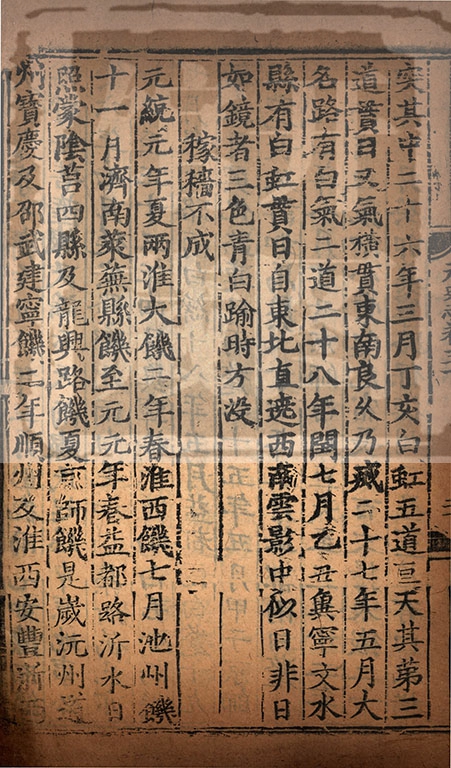 突其中二十六年三月丁亥白虹五道亘天其第三
道貫日又氣橫貫東南良久乃滅二十七年五月大
名路有白氣二道二十八年閏七月乙丑冀寧文水
縣有白虹貫日自東北直遶西南雲影中似日非日
如鏡者三色青白踰時方没
稼穡不成
元統元年夏兩淮大饑二年春淮西饑七月池州饑
十一月濟南萊蕪縣饑至元元年春益都路沂水日
照蒙陰莒四縣及龍興路饑夏京師饑是歲沅州道
州寶慶及邵武建寧饑二年順州及淮西安豐浙西